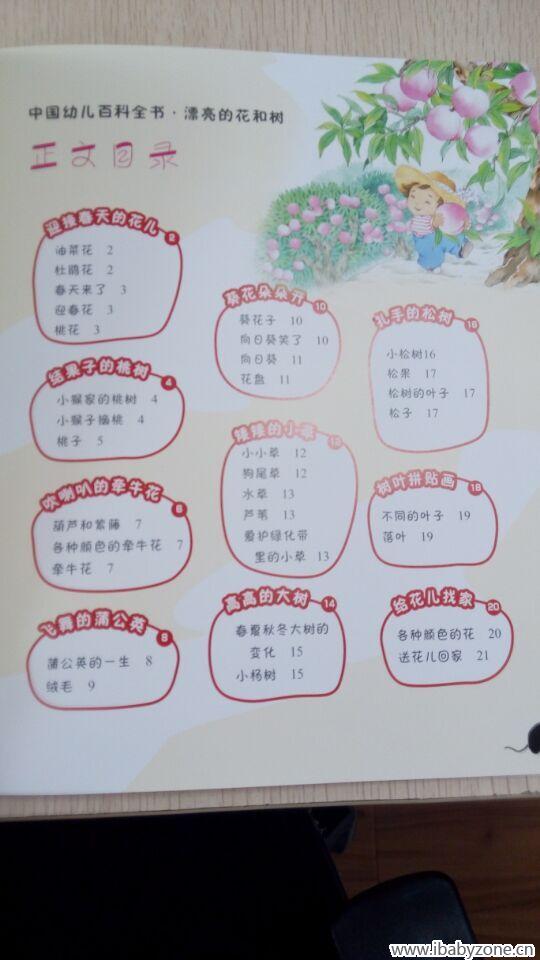 中国幼儿百科全书·漂亮的花和树
正文目录
迎接春天的花儿 2
油菜花 2
杜鹃花 2
春天来了 3
迎春花 3
桃花 3
结果子的桃树 4
小猴家的桃树 4
小猴子摘桃 4
桃子 5
吹喇叭的牵牛花 6
葫芦和紫藤 7
各种颜色的牵牛花 7
牵牛花 7
飞舞的蒲公英 8
蒲公英的一生 8
绒毛 9
葵花朵朵开 10
葵花子 10
向日葵笑了 10
向日葵 11
花盘 11
矮矮的小草 12
小小草 12
狗尾草 12
水草 13
芦苇 13
爱护绿化带
里的小草 13
高高的大树 14
春夏秋冬大树的
变化 15
小杨树 15
扎手的松树 16
小松树16
松果 17
松树的叶子 17
松子 17
树叶拼贴画 18
不同的叶子 19
落叶 19
给花儿找家 20
各种颜色的花 20
送花儿回家 21
www.ibabyzone.cn